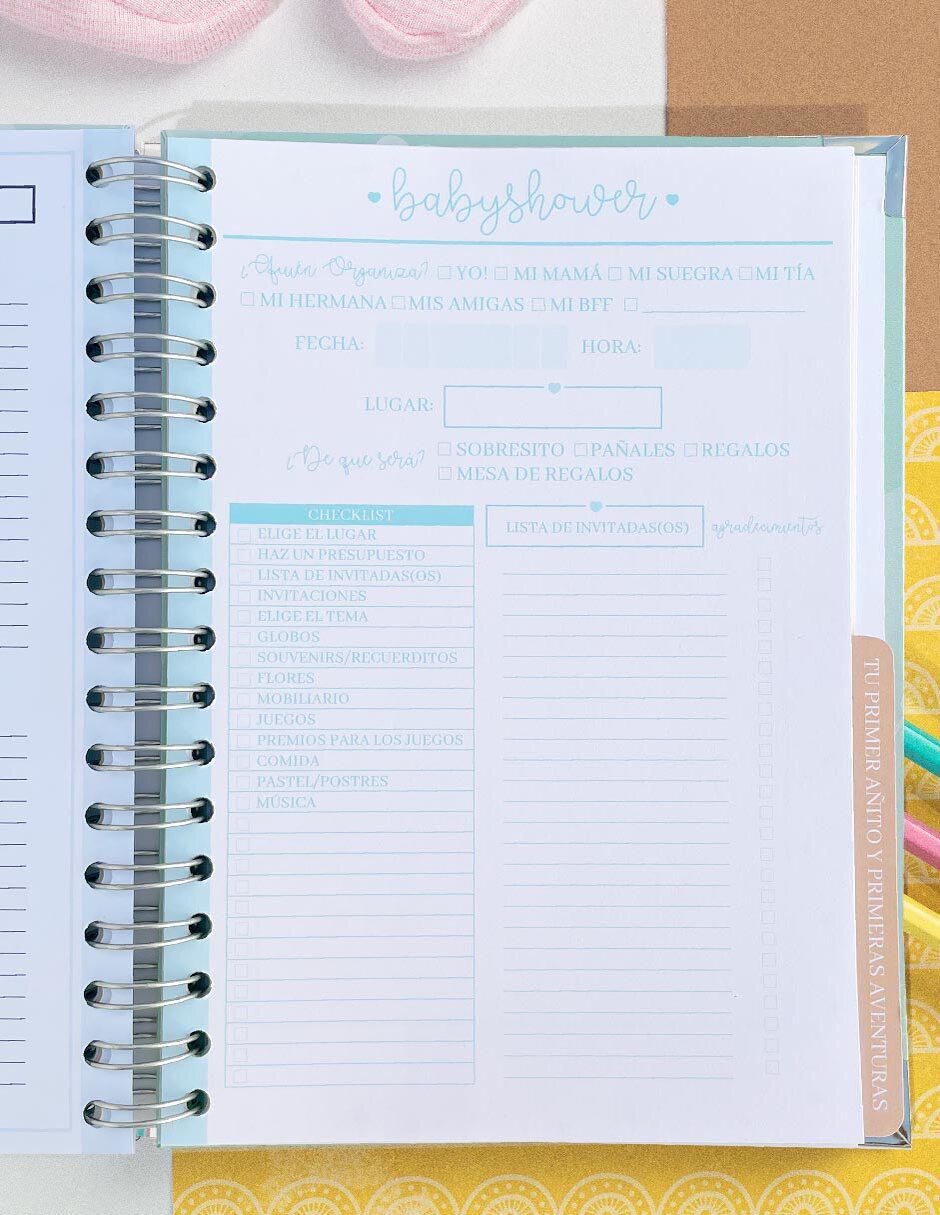 babyshower
¿Quién Organiza? YO! MI MAMÁ MI SUEGRA MI TÍA
MI HERMANA MIS AMIGAS MI BFF
FECHA: HORA:
LUGAR:
¿De que será? SOBRESITO PAÑALES REGALOS
MESA DE REGALOS
CHECKLIST
ELIGE EL LUGAR
HAZ UN PRESUPUESTO
LISTA DE INVITADAS(OS)
INVITACIONES
ELIGE EL TEMA
GLOBOS
SOUVENIRS/RECUERDITOS
FLORES
MOBILIARIO
JUEGOS
PREMIOS PARA LOS JUEGOS
COMIDA
PASTEL/POSTRES
MÚSICA
LISTA DE INVITADAS(OS) agradecimientos
TU PRIMER AÑITO Y PRIMERAS AVENTURAS